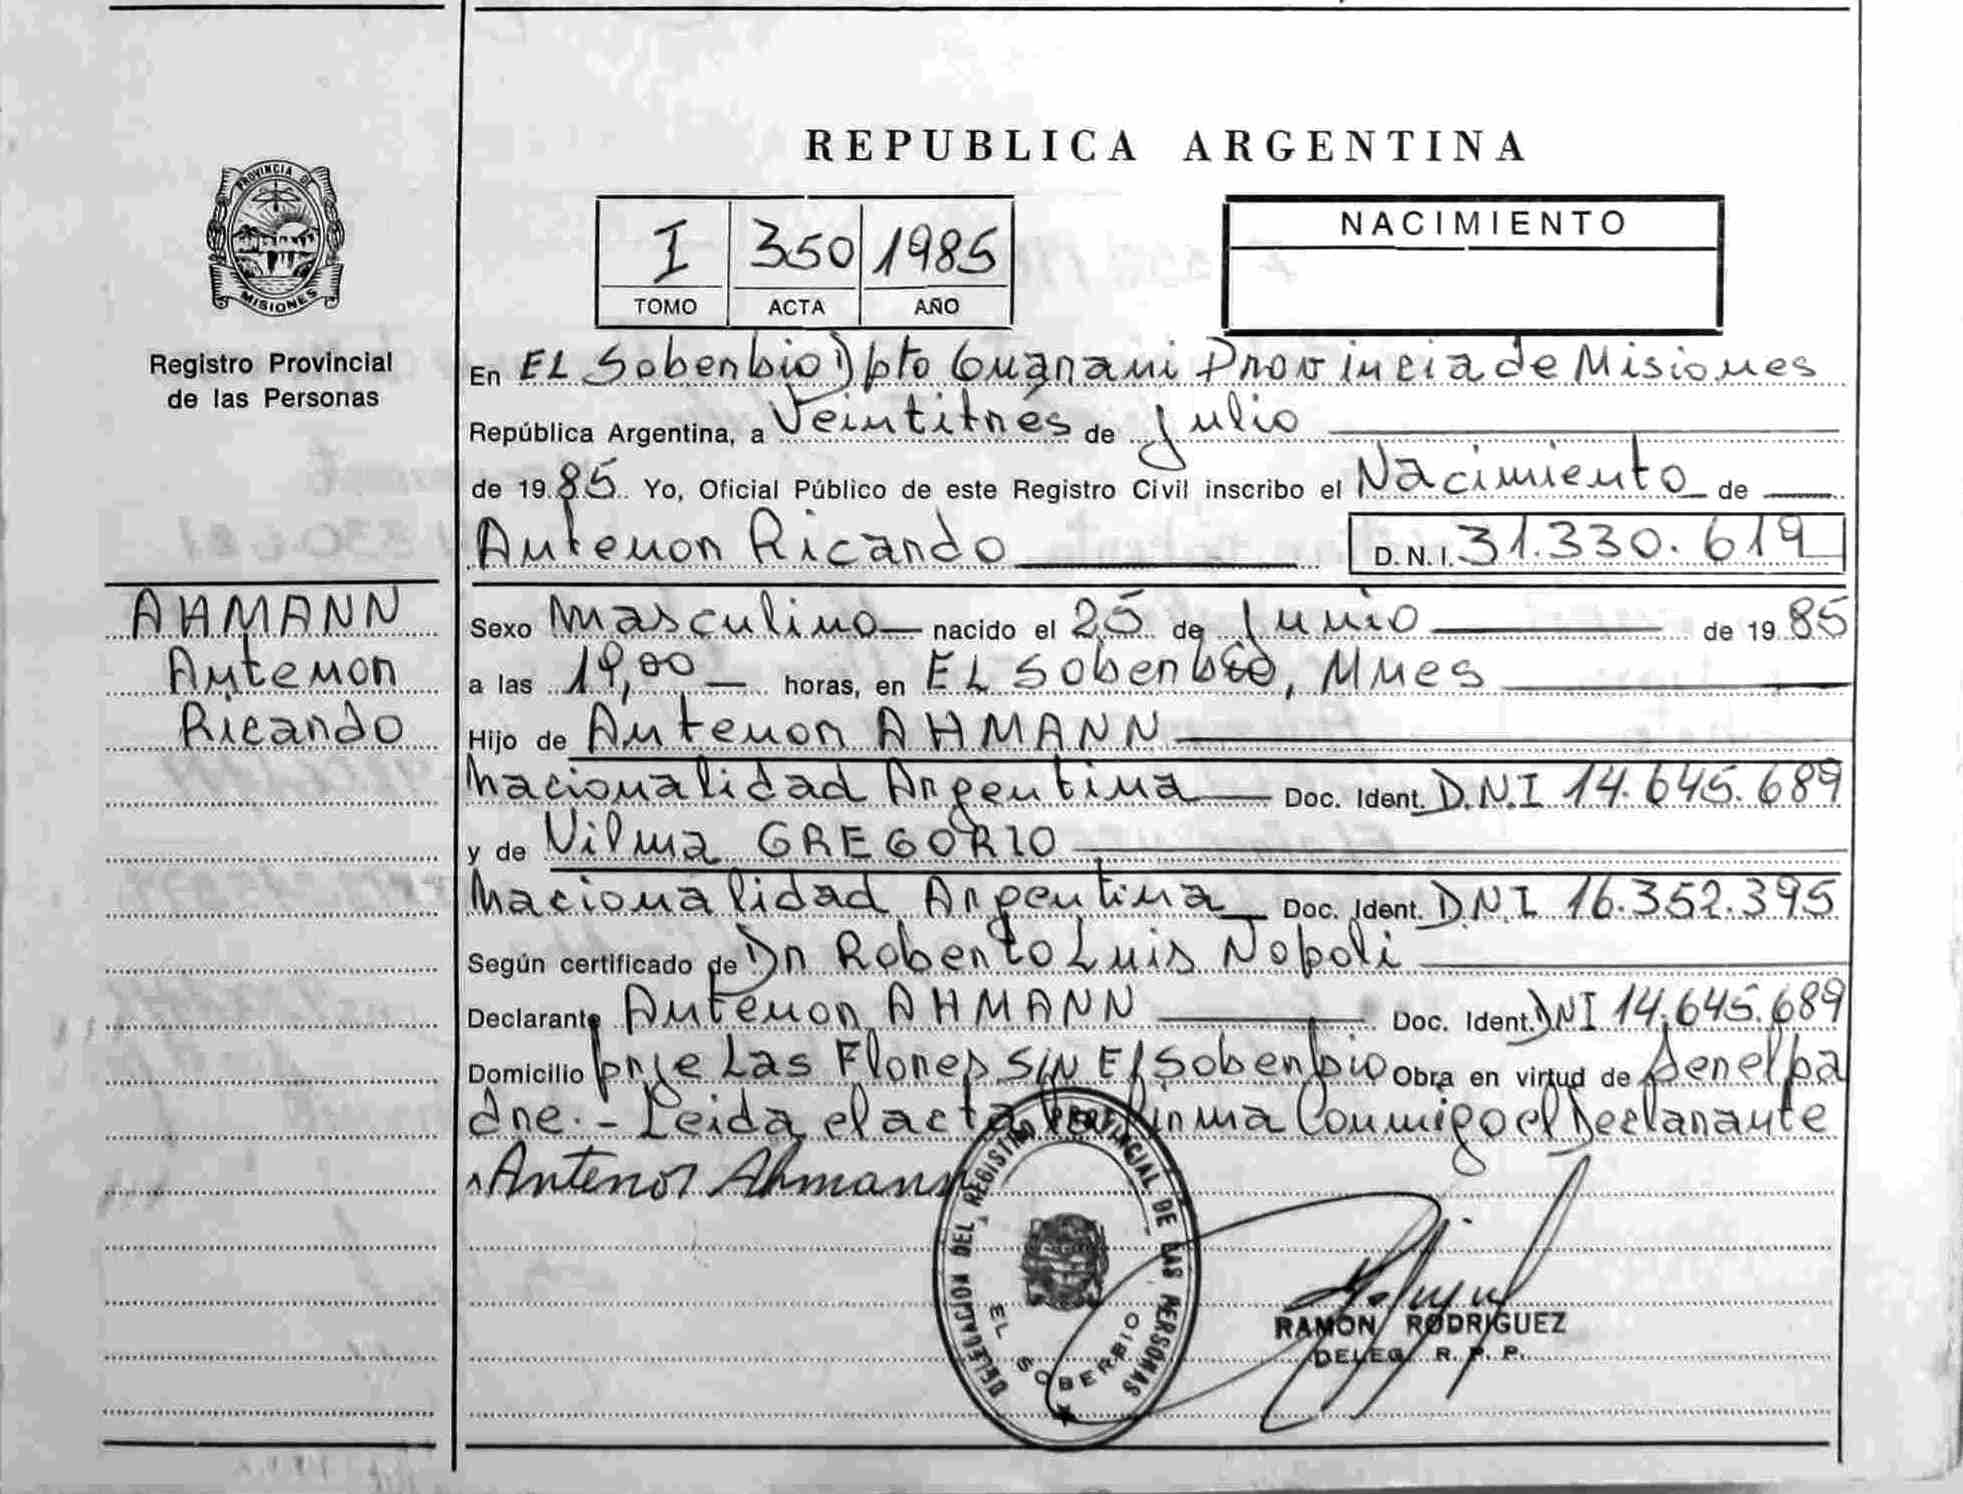 REPUBLICA ARGENTINA
PROVINCIA DE
MISIONES
Registro Provincial
de las Personas
I 350 1985
TOMO ACTA AÑO
NACIMIENTO
En EL Soberbio Dpto Guarani Provincia de Misiones
República Argentina, a Veintitres de Julio
de 1985 Yo, Oficial Público de este Registro Civil inscribo el Nacimiento de
Antenor Ricardo D.N.I. 31.330.619
AHMANN
Antenor
Ricardo
Sexo Masculino nacido el 25 de Junio de 1985
a las 19,00 horas, en EL Soberbio, Mnes
Hijo de Antenor AHMANN
Nacionalidad Argentina Doc. Ident. D.N.I 14.645.689
y de Vilma GREGORIO
Nacionalidad Argentina Doc. Ident. D.N.I 16.352.395
Según certificado de Dr Roberto Luis Nopoli
Declarante Antenor AHMANN Doc. Ident. DNI 14.645.689
Domicilio Pnje Las Flores S/N El Soberbio Obra en virtud de Ser el pa
dre.- Leida el acta la firma Conmigo el Declarante
Antenor Ahmann
DELEGACION DEL REGISTRO PROVINCIAL DE LAS PERSONAS
EL SOBERBIO
RAMON RODRIGUEZ
DELEG. R. P. P.